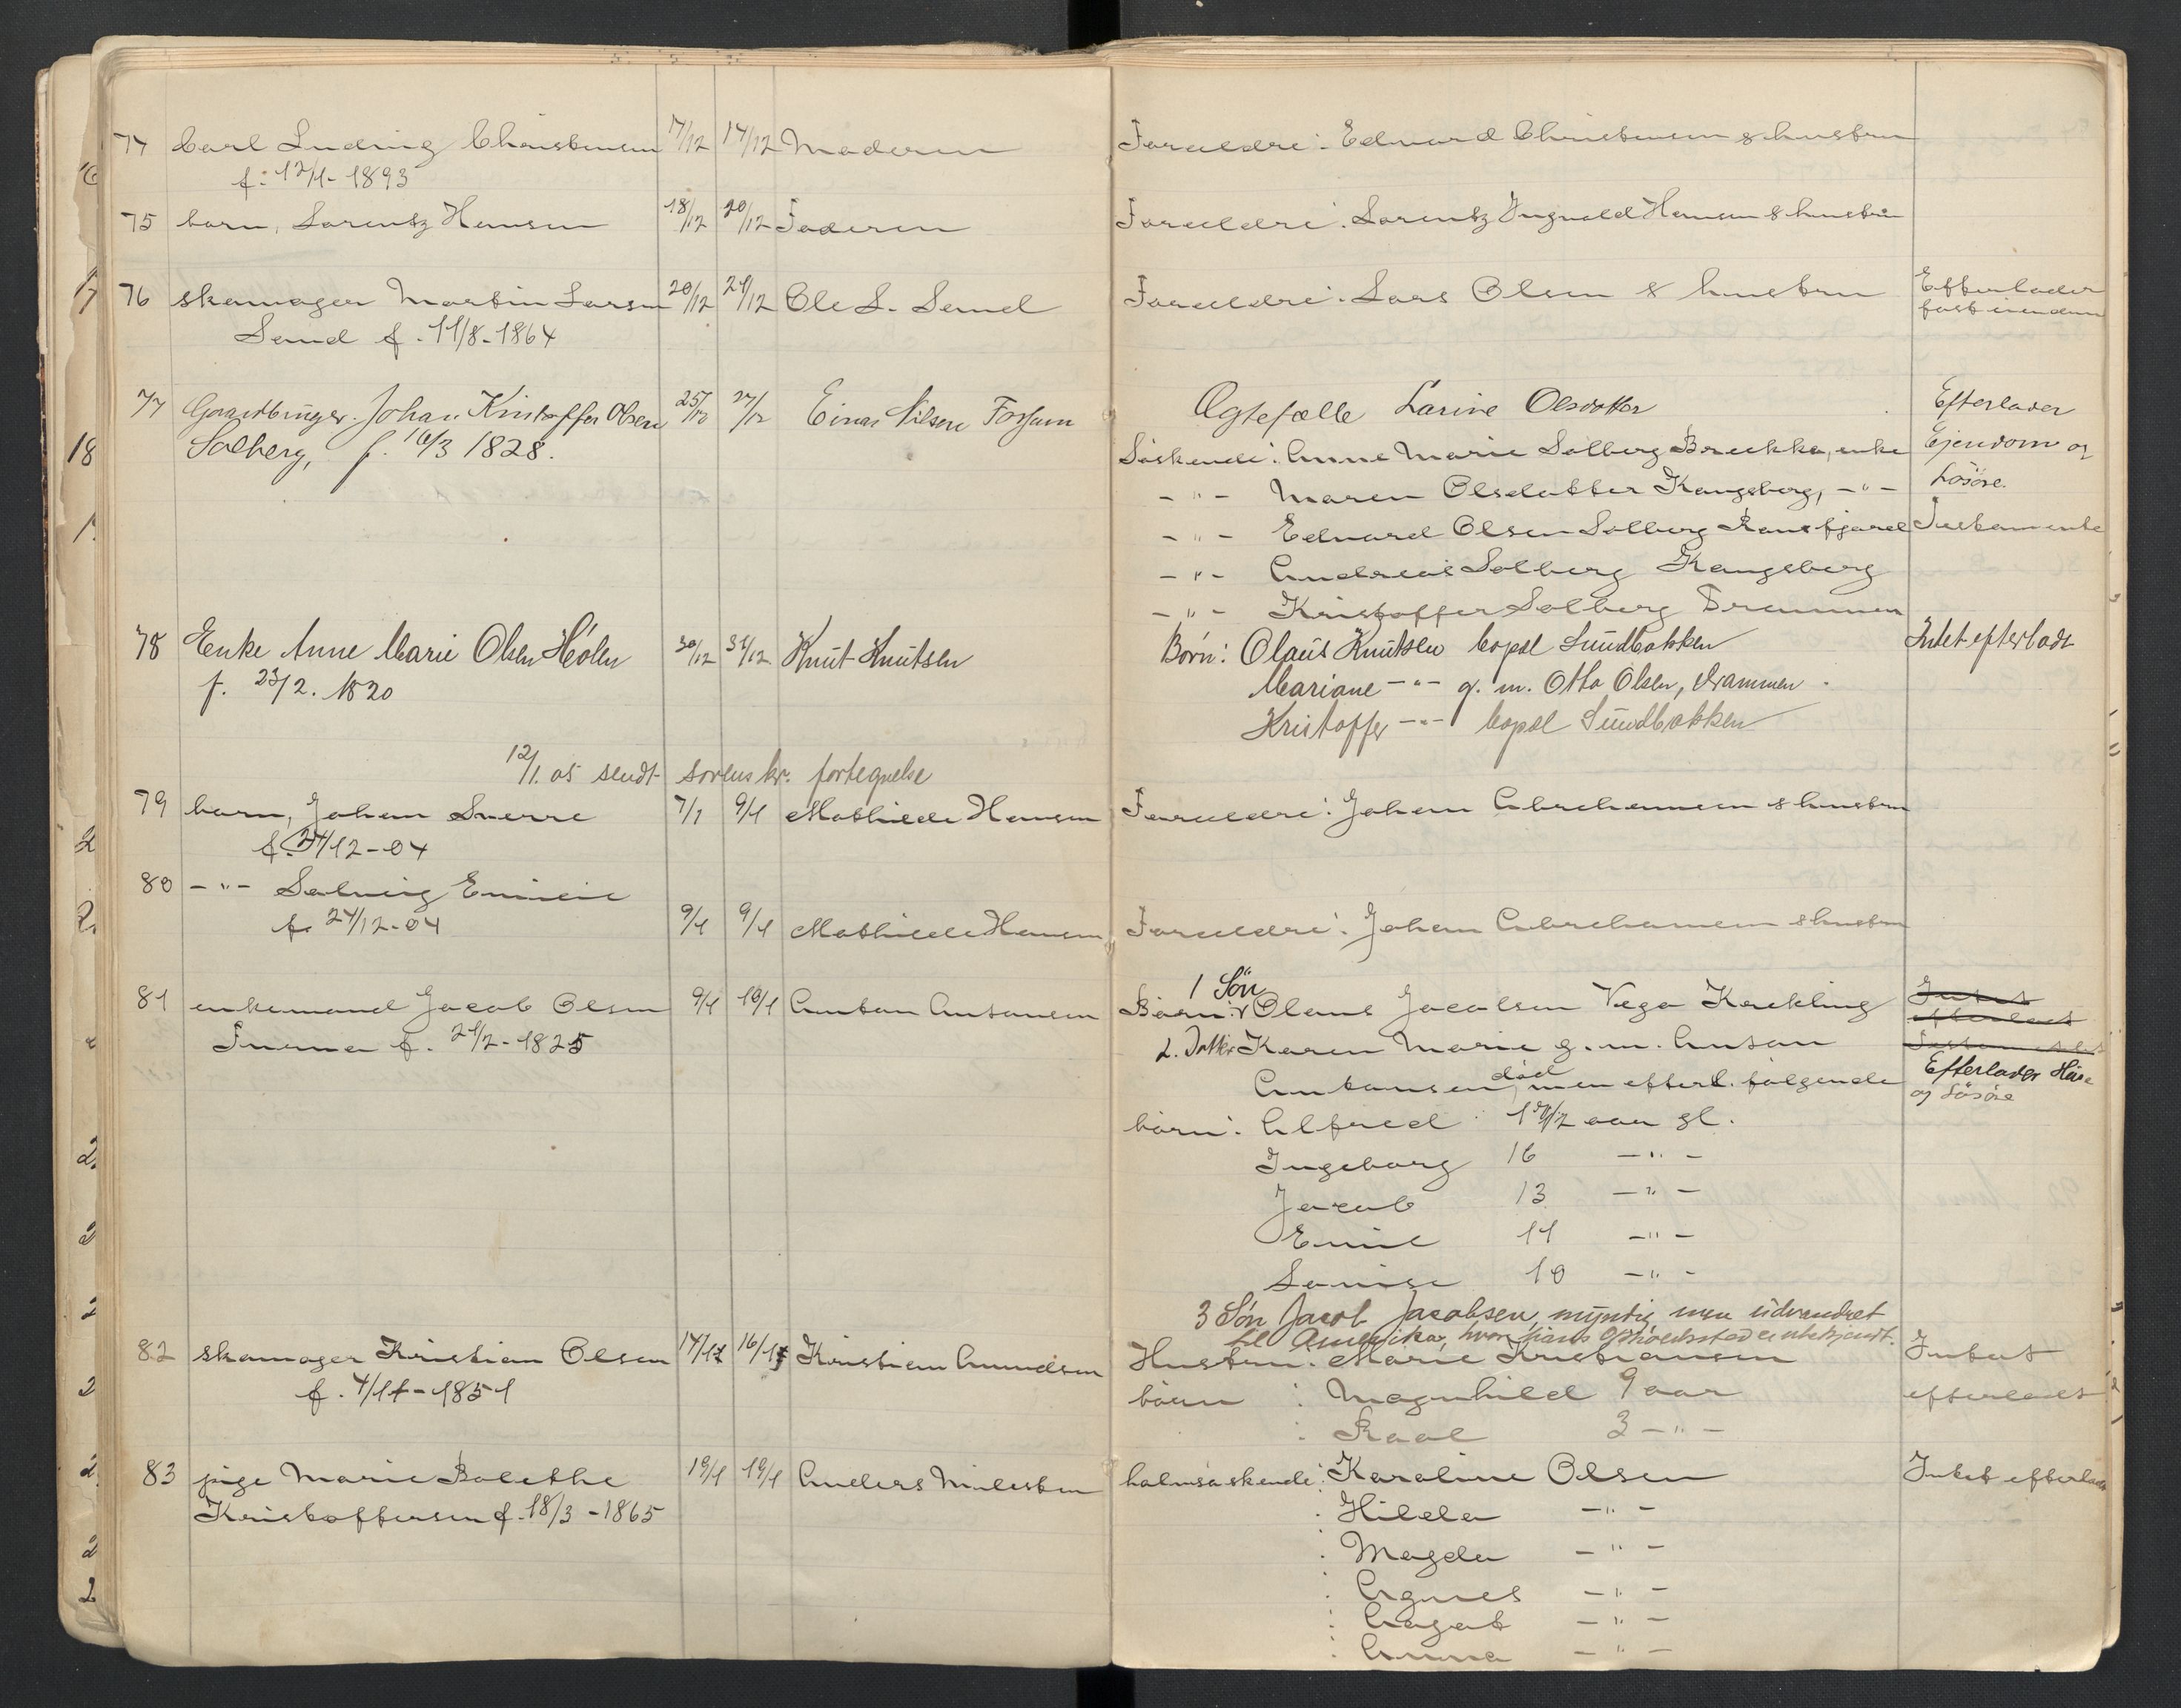 74 Carl Ludvig Christensen 17/12 17/12 Moderen Forældre: Edvard Christensen & hustru
f: 12/1-1893
75 barn, Lorentz Hansen 18/12 20/12 Faderen Forældre: Lorentz Ingvald Hansen & hustru
76 skomager Martin Larsen 20/12 21/12 Ole L. Semd Forældre: Lars Olsen & hustru Efterlader
Semd f. 11/8-1864 fast eiendom
77 Gaardbruger Johan Kristoffer Olsen 25/12 27/12 Einar Nilsen Ægtefælle Larine Olsdatter Efterlader
Solberg, f. 16/3 1828. Söskende: Anne Marie Solberg Brækka, enke Ejendom og
- " - Maren Olsdatter Kongsberg, - " - Løsöre.
- " - Edvard Olsen Solberg Testamente
- " - Andreas Solberg Kongsberg
- " - Kristoffer Solberg Drammen
78 Enke Anne Marie Olsen Hólen 30/12 31/12 Knut Knutsen Börn: Olaus Knutsen Copsl Sundbakken Intet efterladt
f. 23/2. 1820 Mariane - " - g. m. Otto Olsen, Drammen.
Kristoffer - " - Copsl Sundbakken
12/1.05 sendt sorenskr. fortegnelse
79 barn, Johan Sverre 7/1 9/1 Mathilde Hansen Forældre: Johan Abrahamsen & hustru
f. 24/12-04
80 - " - Solveig Emilie
f. 24/12-04 9/1 9/1 Mathilde Hansen Forældre: Johan Abrahamsen & hustru
1 Sön
81 enkemand Jacob Olsen 9/1 10/1 Anton Antonsen Börn: Olaus Jacobsen Vego Krekling Intet
efterladt
f. 21/2-1825 2. Datter Karen Marie g. m. Anton
Antonsen, død men efterl. følgende Efterlader Hus
og Løsöre
börn: Alfred 17 1/2 aar gl.
Ingeborg 16 - " -
Jacob 13 - " -
Emil 11 - " -
Lovise 10 - " -
3 Sön Jacob Jacobsen, myndig men udvandret
til Amerika, hvor hans Opholdssted er ubekjendt.
82 skomager Kristian Olsen 14/1 16/1 Kristian Amundsen Hustru: Marie Kristiansen Intet
f. 4/11-1851 börn : Magnhild 9 aar efterladt
: 3 - " -
83 pige Marie Bolethe 19/1 19/1 Anders Milesten halvsöskende: Karoline Olsen Intet efterladt
Kristoffersen f. 18/3-1865 : Hilda - " -
: Magda - " -
: Agnes - " -
: Aagot - " -
: Anna - " -